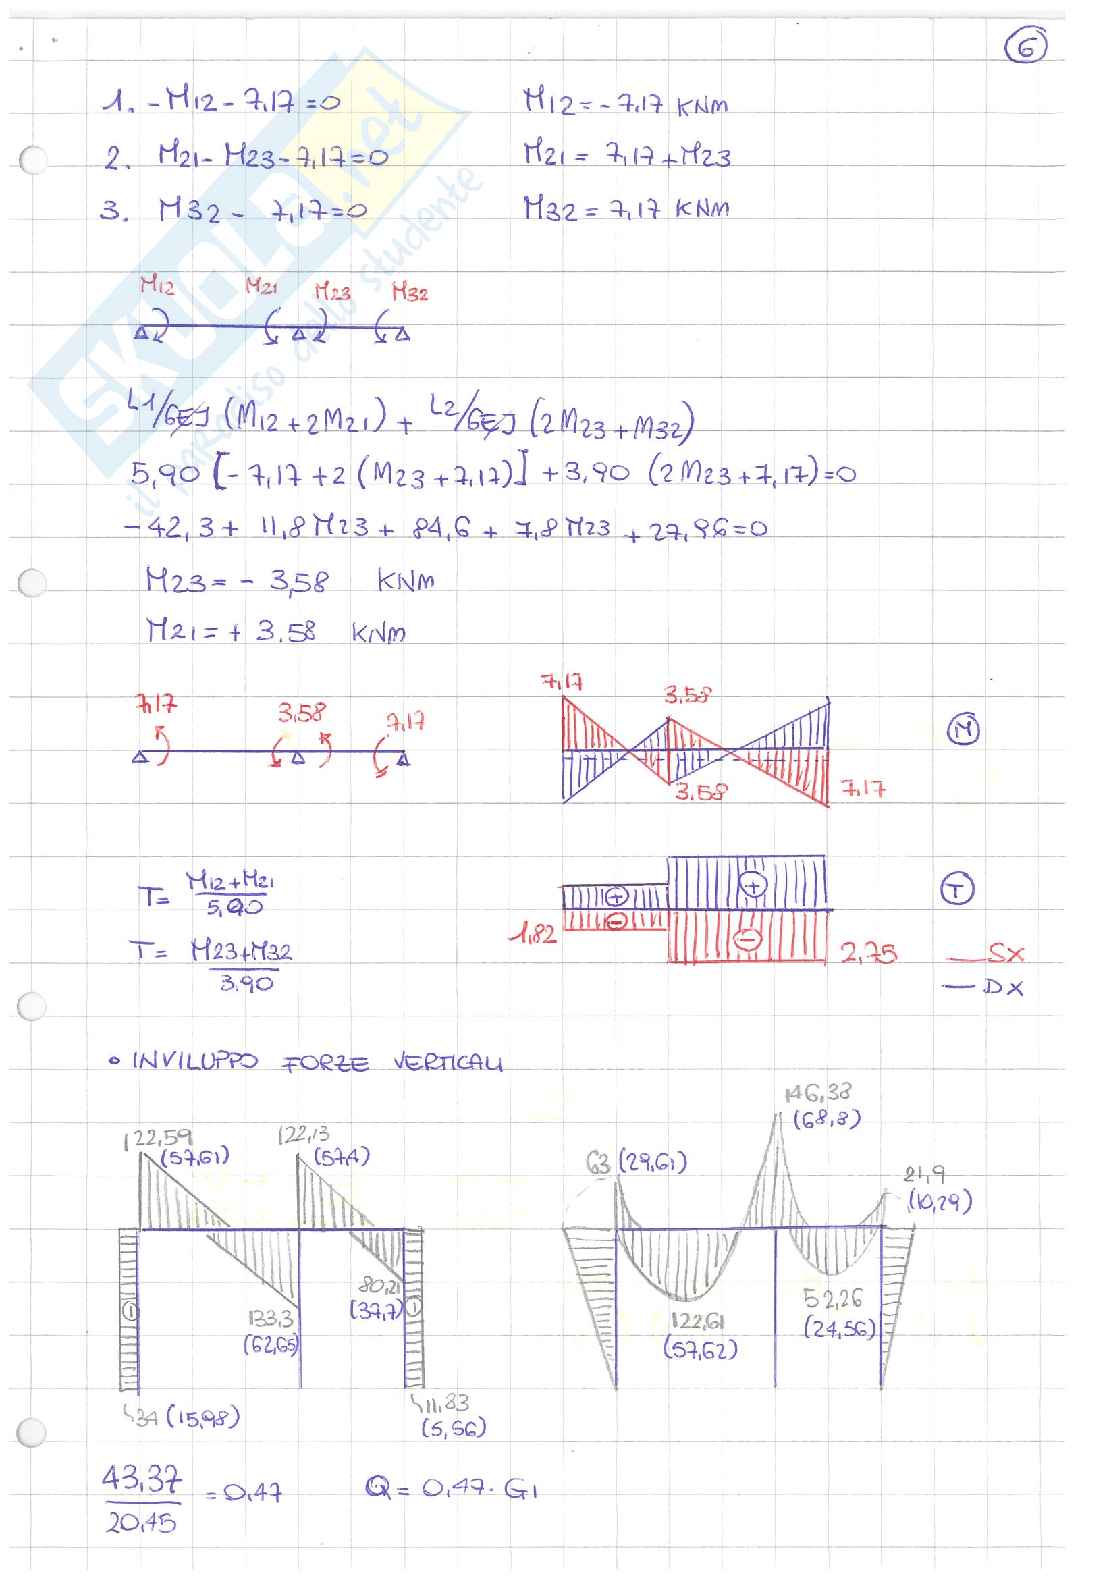 6
1. -M12 - 7,17 = 0 M12 = - 7,17 KNm
2. M21 - M23 - 7,17 = 0 M21 = 7,17 + M23
3. M32 - 7,17 = 0 M32 = 7,17 KNm
SKUOLA.net
il paradiso dello studente
M12 M21 M23 M32
L1/6EJ (M12 + 2M21) + L2/6EJ (2M23 + M32)
5,90 [- 7,17 + 2 (M23 + 7,17)] + 3,90 (2M23 + 7,17) = 0
- 42,3 + 11,8 M23 + 84,6 + 7,8 M23 + 27,96 = 0
M23 = - 3,58 KNm
M21 = + 3.58 KNm
7,17 3,58 7,17
7,17 3.58 M
3.58 7,17
T = M12+M21 / 5,90
+ + T
T = M23+M32 / 3.90
1,82 - - 2,75 SX
DX
• INVILUPPO FORZE VERTICALI
122,59 (57,61) 122,13 (57,4)
146,38 (68,8)
63 (29,61) 21,9 (10,29)
133,3 (62,65) 80,21 (37,7)
122,61 (57,62) 52,26 (24,56)
34 (15,98) 11,83 (5,56)
43,37 / 20,45 = 0,47 Q = 0,47 · G1